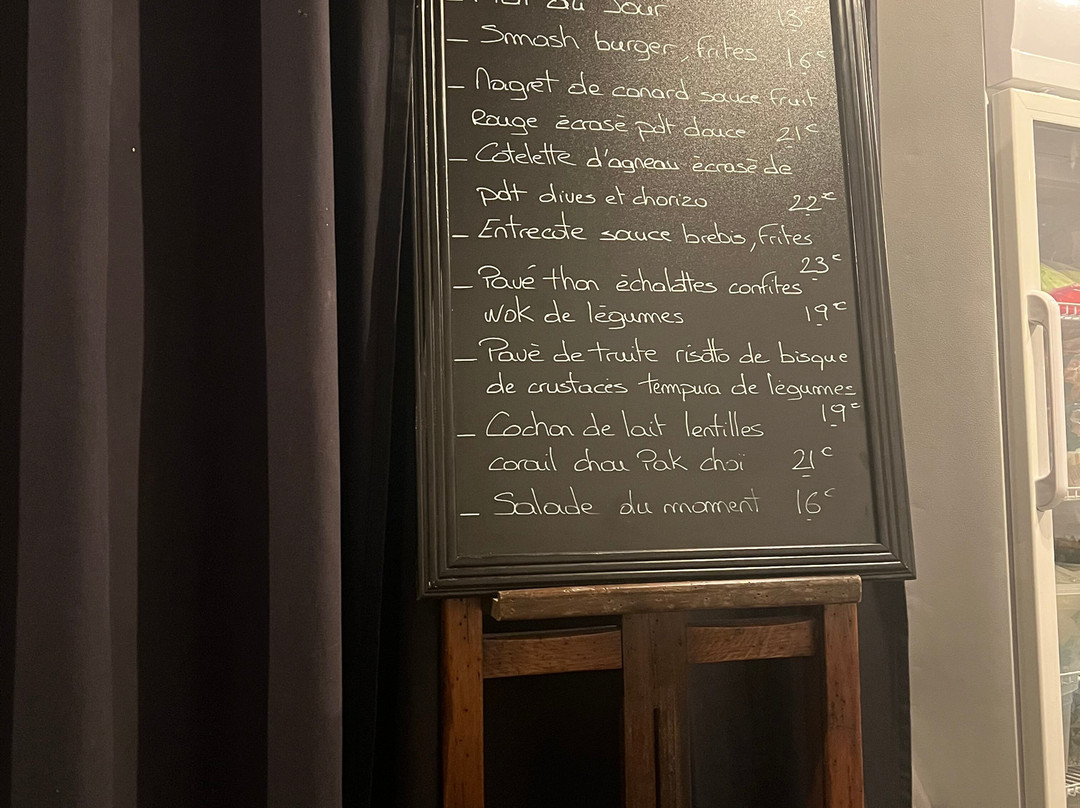 Plat du Jour 13€
_ Smash burger, frites 16€
_ Magret de canard sauce fruit
Rouge écrasé pdt douce 21€
_ Cotelette d'agneau écrasé de
pdt olives et chorizo 22€
_ Entrecote sauce brebis, frites
23€
_ Pavé thon échalottes confites
wok de légumes 19€
_ Pavé de truite risotto de bisque
de crustacés tempura de légumes
19€
_ Cochon de lait lentilles
corail chou Pak choï 21€
_ Salade du moment 16€